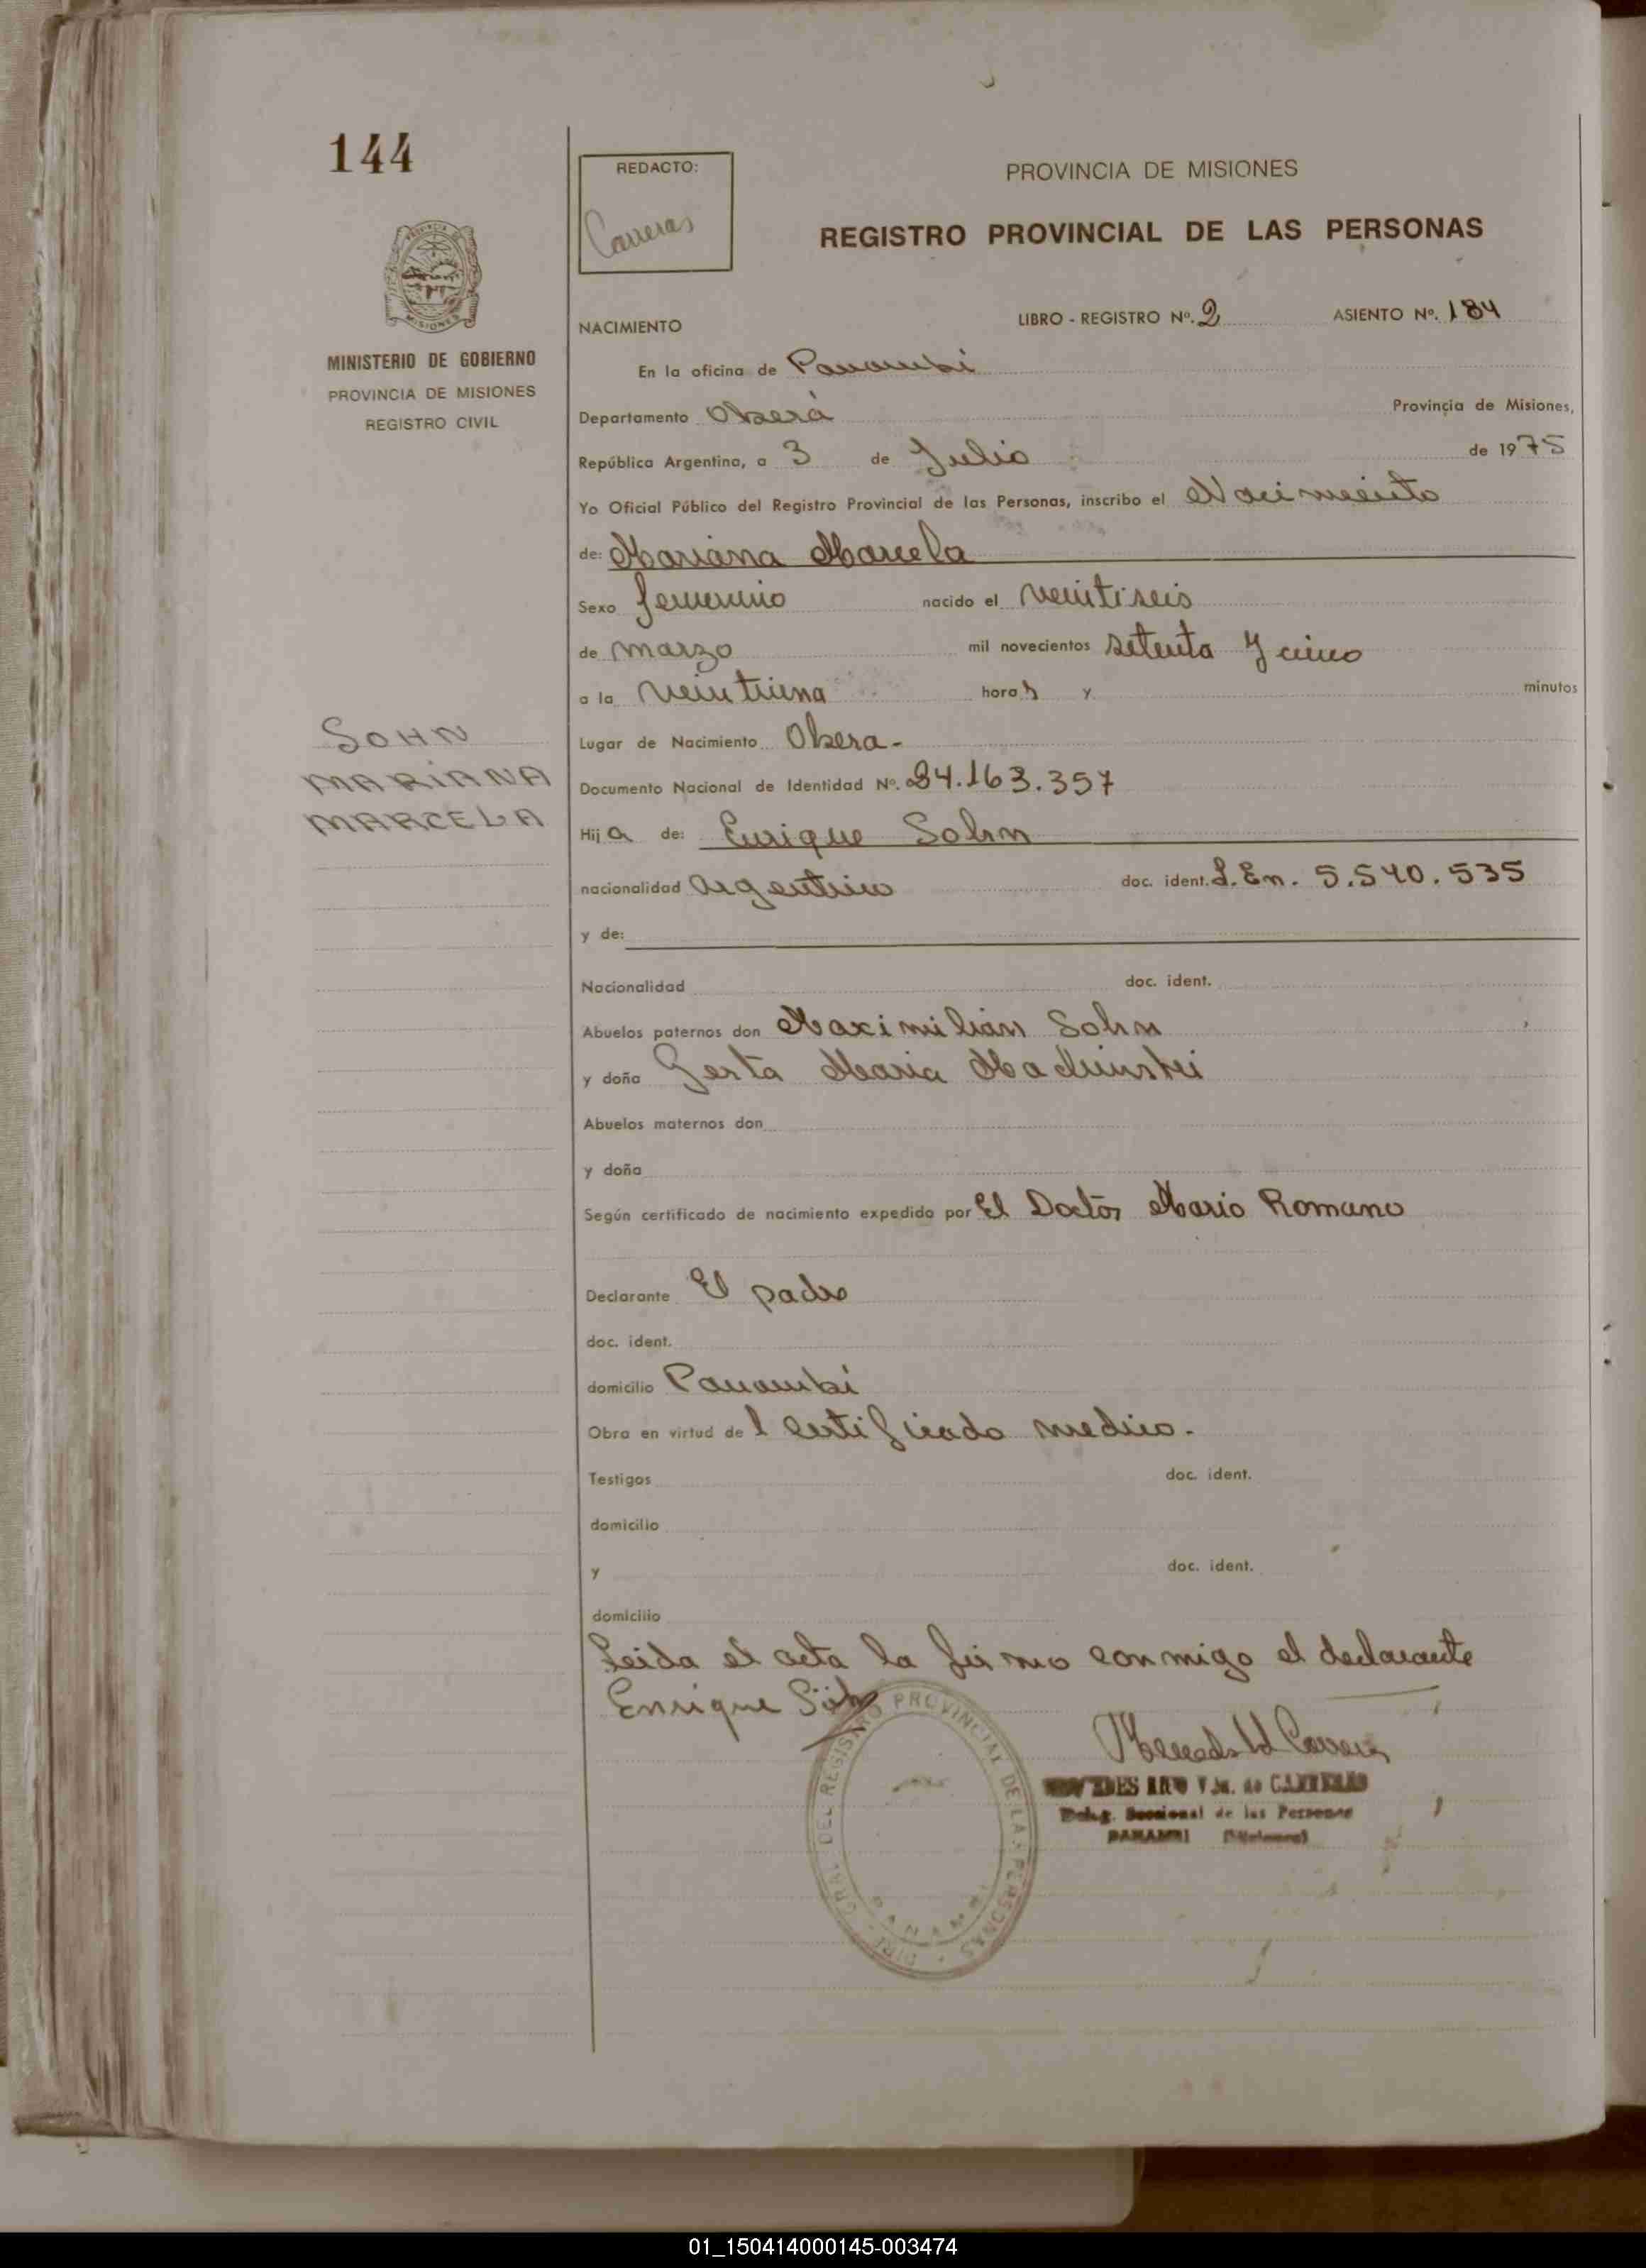 144
REDACTO:
Carreras
PROVINCIA DE MISIONES
REGISTRO PROVINCIAL DE LAS PERSONAS
MISIONES
MINISTERIO DE GOBIERNO
PROVINCIA DE MISIONES
REGISTRO CIVIL
NACIMIENTO LIBRO - REGISTRO Nº. 2 ASIENTO Nº. 184
En la oficina de Panambi
Departamento Oberá Provincia de Misiones,
República Argentina, a 3 de Julio de 1975
Yo Oficial Público del Registro Provincial de las Personas, inscribo el Nacimiento
de: Mariana Marcela
Sexo femenino nacido el veintiseis
de marzo mil novecientos setenta y cinco
a la veintiuna horas y minutos
SOHN
MARIANA
MARCELA
Lugar de Nacimiento Obera-
Documento Nacional de Identidad Nº. 24.163.357
Hija de: Enrique Sohn
nacionalidad Argentino doc. ident. L.En. 5.540.535
y de:
Nacionalidad doc. ident.
Abuelos paternos don Maximilián Sohn
y doña Gerta Maria
Abuelos maternos don
y doña
Según certificado de nacimiento expedido por El Doctor Mario Romano
Declarante El padre
doc. ident.
domicilio Panambi
Obra en virtud del certificado medico.
Testigos doc. ident.
domicilio
y doc. ident.
domicilio
Leida el acta la firmo conmigo el declarante
Enrique Söhn
DIRE. GRAL. DEL REGISTRO PROVINCIAL DE LAS PERSONAS
PANAMBI
de CARRERAS
Deleg. Seccional de las Personas
PANAMBI (Misiones)
01_150414000145-003474